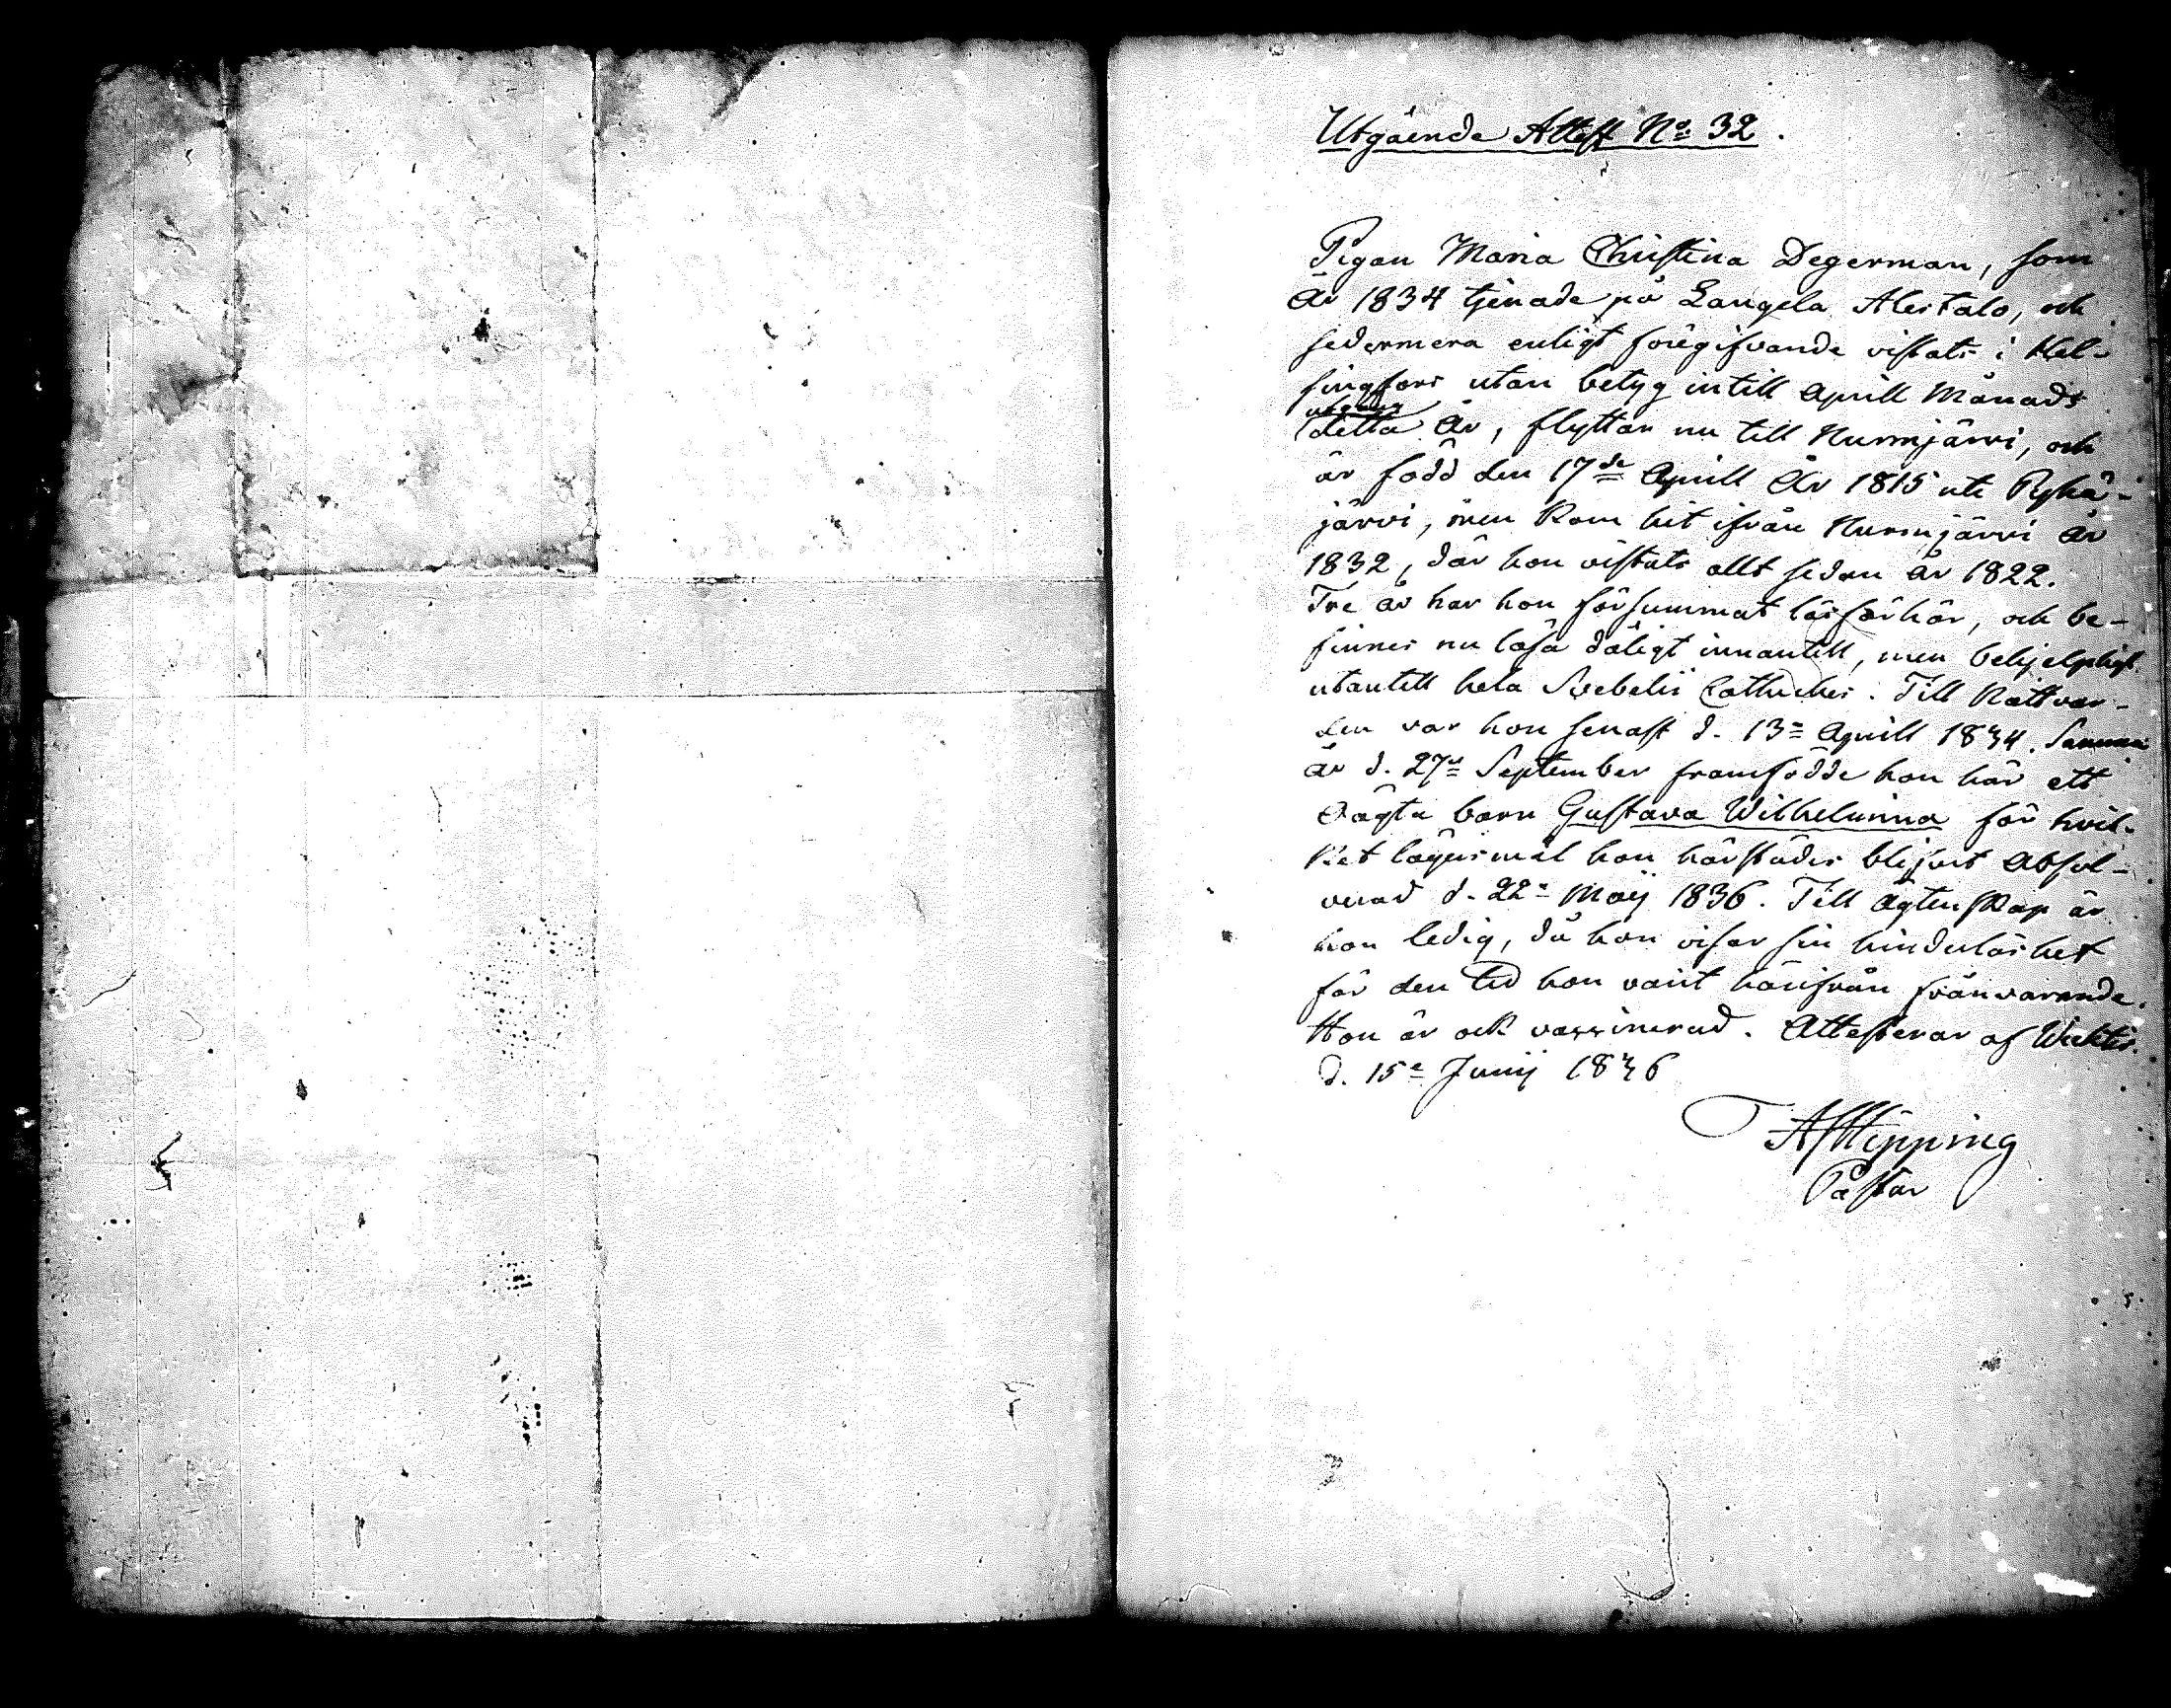 Utgående Attest No. 32.
Pigan Maria Christina Degerman, som
År 1834 tjenade på Langela Alestalo, och
sedermera enligt föregifvande vistats i Hel-
singfors utan betyg intill Aprill Månads
utgång
detta År, flyttar nu till Nurmjärvi, och
är född den 17de Aprill År 1815 uti Pyhä-
järvi, men kom hit ifrån Nurmjärvi År
1832, där hon vistats allt sedan År 1822.
Tre år har hon försummat läsförhör, och be-
finnes nu läsa dåligt innantill, men behjelpligt
utantill hela Svebelii Catheches. Till Nattvar-
den var hon senast d. 13e Aprill 1834. Samma
år d. 27e September framfödde hon här ett
oägta barn Gustava Wilhelmina för hvil-
ket lägersmål hon härstädes blifvit Absol-
verad d. 22e Maij 1836. Till Ägtenskap är
hon ledig, då hon visar sin hinderlöshet
för den tid hon varit härifrån frånvarande.
Hon är ock vaccinerad. Attesterar af Wichtis
d. 15e Junij 1836
Hipping
Pastor